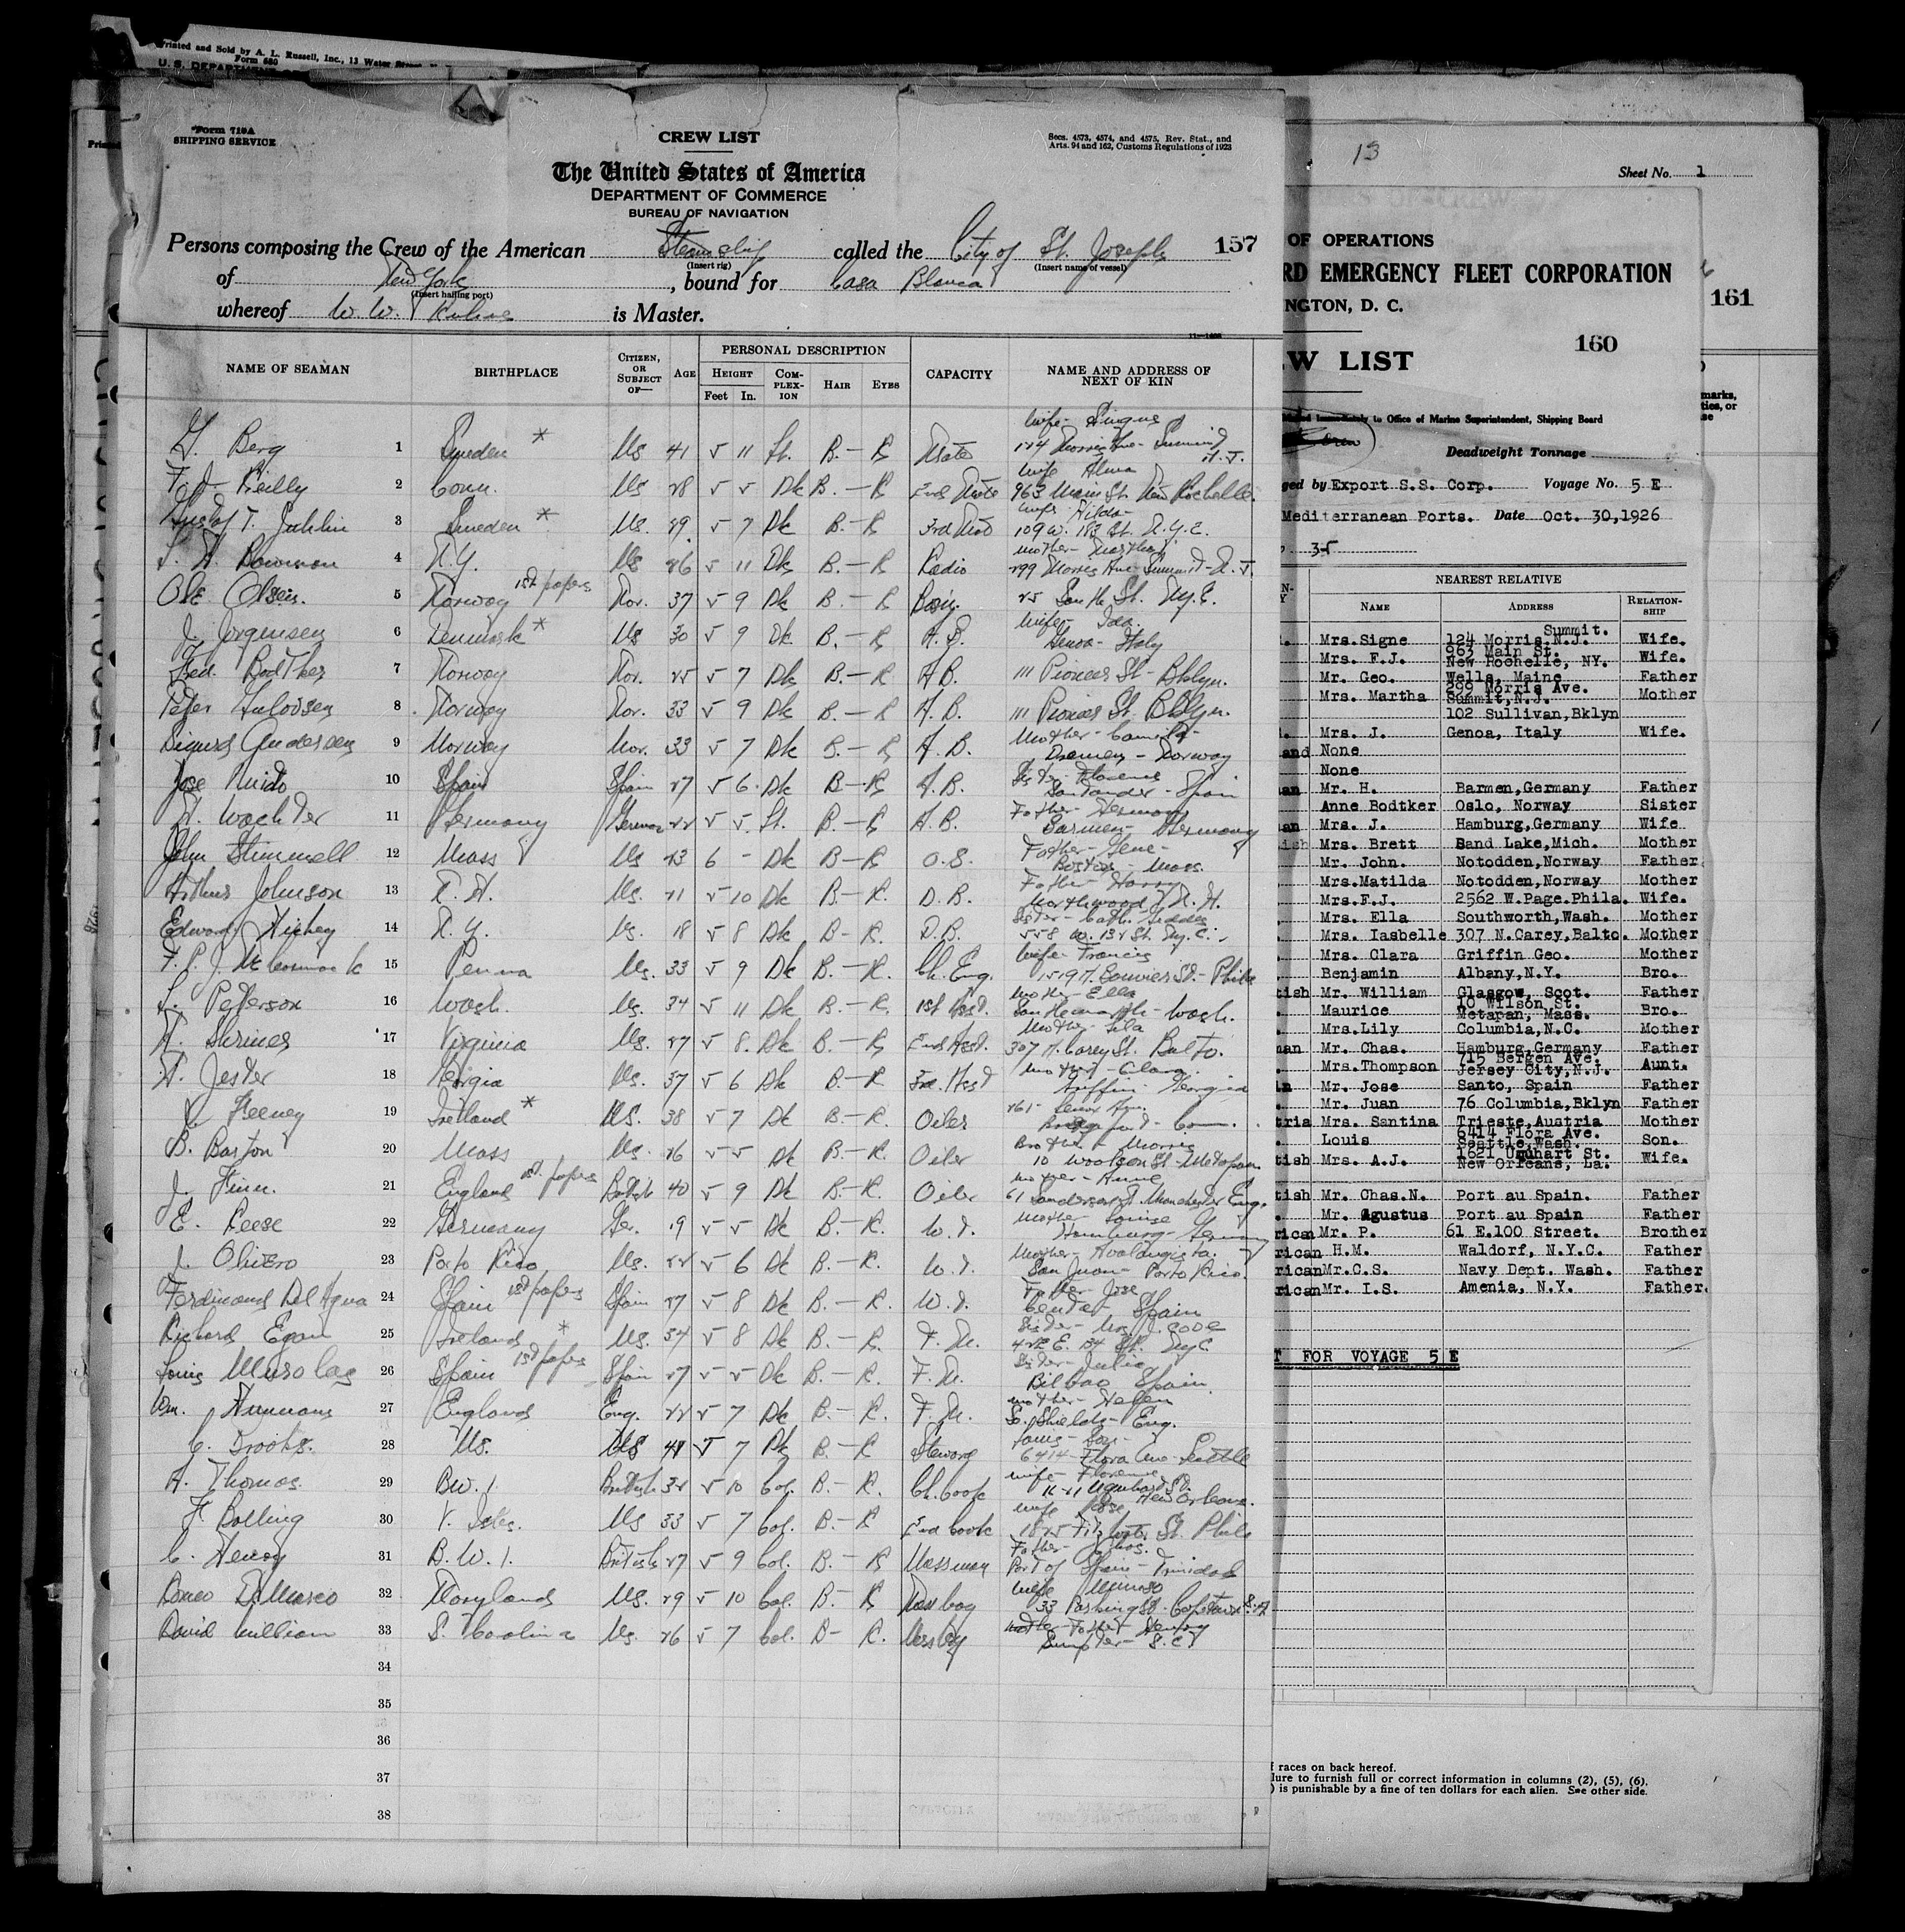 Printed and Sold by A. L. Russell, Inc., 13 Water
Form 680
Form 710A
SHIPPING SERVICE
CREW LIST
Secs. 4573, 4574, and 4575, Rev. Stat., and
Arts. 94 and 162, Customs Regulations of 1923
The United States of America
DEPARTMENT OF COMMERCE
BUREAU OF NAVIGATION
Persons composing the Crew of the American Steamship called the City of St. Joseph 157
(Insert rig) (Insert name of vessel)
of New York, bound for Casa Blanca
(Insert hailing port)
whereof W. W. is Master.
NAME OF SEAMAN BIRTHPLACE CITIZEN, OR SUBJECT OF— AGE PERSONAL DESCRIPTION CAPACITY NAME AND ADDRESS OF NEXT OF KIN
HEIGHT COMPLEXION HAIR EYES
Feet In.
Berg 1 Sweden * US 41 5 11 Lt. B. — B Mate
F. J. Reilly 2 Conn. US 28 5 5 Dk B. — B 2nd Mate wife Alma 963 Main St. New Rochelle
Gustaf T. Juhlin 3 Sweden * US. 29 5 7 Dk B. — B 3rd Mate wife Hilda 109 W. 183 St. N.Y.C.
Bowman 4 N.Y. US 26 5 11 Dk B. — B Radio mother Martha 299 Morris Ave Summit N.J.
Ole Olsen 5 Norway 1st papers Nor. 37 5 9 Dk B. — B 25 South St. N.Y.C.
J. Jorgensen 6 Denmark * US 30 5 9 Dk B. — B A.B. wife Ida Genoa Italy
7 Norway Nor. 25 5 7 Dk B. — B A.B. 111 Pioneer St Bklyn.
Peter 8 Norway Nor. 33 5 9 Dk B. — B A.B. 111 Pioneer St. Bklyn.
Sigurd Andersen 9 Norway Nor. 33 5 7 Dk B. — B A.B. Mother Norway
Jose 10 Spain Spain 27 5 6 Dk B — B A.B. Sister Florence Santander Spain
H. Wachter 11 Germany German 22 5 5 Lt. B. — B A.B. Father Barmen Germany
John Stimmell 12 Mass US 23 6 - Dk B — B O.S. Father Gene Boston Mass.
Arthur Johnson 13 N.H. US. 21 5 10 Dk B. — B D.B. Father Harry Northwood N.H.
Edward Hickey 14 N.Y. US. 18 5 8 Dk B — B. D.B. 558 W. 132 St. N.Y.C.
F. P. J. McCormack 15 Penna US. 33 5 9 Dk B. — B. Ch. Eng. wife Francis Bouvier St. Phila
L. Peterson 16 Wash. US. 34 5 11 Dk B. — B. 1st Asst. mother Ella Wash.
17 Virginia US. 27 5 8. Dk B. — B 2nd Asst. Mother 307 N. Carey St. Balto.
H. Jester 18 Georgia US. 37 5 6 Dk B. — B 3rd. Asst Mother Clara Griffin Georgia
Feeney 19 Ireland * US. 38 5 7 Dk B — B. Oiler Conn.
B. Barton 20 Mass US. 26 5 5 Dk B — B. Oiler Brother Morris
J. Finn 21 England 1st. papers British 40 5 9 Dk B. — B. Oiler mother Annie Manchester Eng.
E. Reese 22 Germany Ger. 19 5 5 Dk B. — B. W.T. Mother Louise Hamburg Germany
J. 23 Porto Rico US. 22 5 6 Dk B. — B. W.T. Mother San Juan Porto Rico.
Ferdinand Del Agua 24 Spain 1st papers Spain 27 5 8 Dk B. — B. W.T. Father Jose Spain
Richard Egan 25 Ireland * US. 34 5 8 Dk B. — B. F.M. Sister
Louis 26 Spain 1st papers Spain 27 5 5 Dk B. — B. F.M. Sister Julia Bilbao Spain
Wm. 27 England Eng. 22 5 7 Dk B. — B. F.M. mother Helen So. Shields Eng.
C. Brooks. 28 US. US 41 5 7 Dk B — B Steward Louis Son 6414 Flora Ave Seattle
A. Thomas. 29 B.W.I. British 32 5 10 Col. B. — B. Ch. Cook wife Florence New Orleans.
F. Bolling 30 V. Isles. US 33 5 7 Col. B. — B 2nd Cook wife Rose St. Phila
C. Henry 31 B.W.I. British 27 5 9 Col. B. — B Messman Father Chas. Port of Spain Trinidad
Romeo 32 Maryland US. 29 5 10 Col. B. — B Messboy wife
David William 33 S. Carolina US. 26 5 7 Col. B — B. Messboy Father Henry Sumpter S.C.
34
35
36
37
38
13
Sheet No. 1
OF OPERATIONS
RD EMERGENCY FLEET CORPORATION
NGTON, D. C. 161
160
W LIST
Immediately to Office of Marine Superintendent, Shipping Board
Deadweight Tonnage
ged by Export S.S. Corp. Voyage No. 5 E
Mediterranean Ports. Date Oct. 30,1926
35
NEAREST RELATIVE
NAME ADDRESS RELATIONSHIP
Mrs.Signe 124 Morris N.J. Summit. Wife.
Mrs. F.J. 963 Main St. New Rochelle, NY. Wife.
Mr. Geo. Wells, Maine Father
Mrs. Martha 299 Morris Ave. Summit,N.J. Mother
102 Sullivan,Bklyn
Mrs. J. Genoa, Italy Wife.
None
None
Mr. H. Barmen,Germany Father
Anne Bodtker Oslo, Norway Sister
Mrs. J. Hamburg,Germany Wife
Mrs. Brett Sand Lake,Mich. Mother
Mr. John. Notodden,Norway Father
Mrs.Matilda Notodden,Norway Mother
Mrs.F.J. 2562 W.Page.Phila. Wife.
Mrs. Ella Southworth,Wash. Mother
Mrs. Iasbelle 307 N.Carey,Balto. Mother
Mrs. Clara Griffin Geo. Mother
Benjamin Albany,N.Y. Bro.
tish Mr. William Glasgow, Scot. Father
Maurice 10 Wilson St. Metapan, Mass. Bro.
Mrs.Lily Columbia,N.C. Mother
man Mr. Chas. Hamburg,Germany Father
Mrs.Thompson 715 Bergen Ave. Jersey City,N.J. Aunt.
Mr. Jose Santo, Spain Father
Mr. Juan 76 Columbia,Bklyn Father
tria Mrs. Santina Trieste,Austria Mother
Louis 6414 Flora Ave. Seattle,Wash. Son.
tish Mrs. A.J. 1621 Urquhart St. New Orleans, La. Wife.
tish Mr. Chas.N. Port au Spain. Father
Mr. Agustus Port au Spain Father
rican Mr. P. 61 E.100 Street. Brother
rican H.M. Waldorf, N.Y.C. Father
rican Mr.C.S. Navy Dept. Wash. Father
rican Mr. I.S. Amenia, N.Y. Father.
T FOR VOYAGE 5 E
f races on back hereof.
lure to furnish full or correct information in columns (2), (5), (6).
) is punishable by a fine of ten dollars for each alien. See other side.